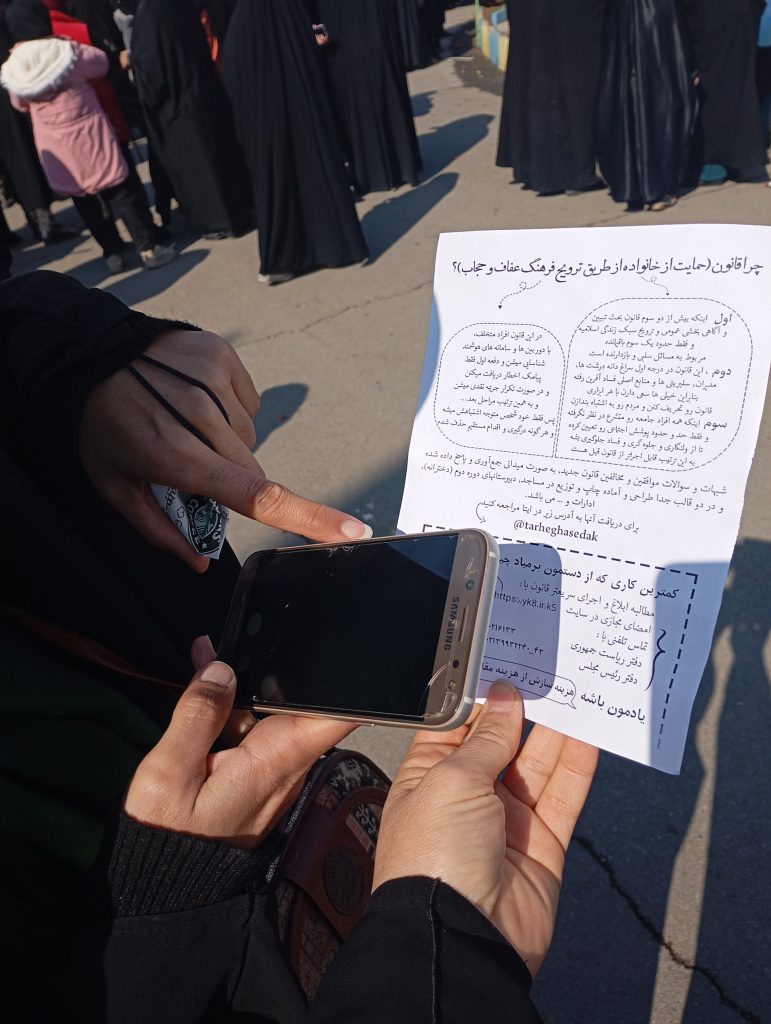 چرا قانون (حمایت از خانواده از طریق ترویج فرهنگ عفاف و حجاب)؟
اول اینکه بیش از دو سوم قانون بحث تبیین
و آگاهی بخشی عمومی و ترویج سبک زندگی اسلامیه
و فقط حدود یک سوم باقیمانده
مربوط به مسائل سلبی و بازدارنده است
دوم، این قانون در درجه اول سراغ دانه درشت ها،
مدیران، سلبریتی ها و منابع اصلی فساد آفرین رفته
بنابراین خیلی ها سعی دارن با هر ابزاری
قانون رو تحریف کنن و مردم رو به اشتباه بندازن
سوم اینکه همه افراد جامعه رو متشرع در نظر نگرفته
و فقط حد و حدود پوشش اجتماعی رو تعیین کرده
تا از ولنگاری و جلوه گری و فساد جلوگیری بشه
به این ترتیب قابل اجراتر از قانون قبل هست
در این قانون افراد متخلف،
با دوربین ها و سامانه های هوشمند
شناسایی میشن و دفعه اول فقط
پیامک اخطار دریافت میکنن
و در صورت تکرار جریمه نقدی میشن
و به همین ترتیب مراحل بعد...
پس فقط خود شخص متوجه اشتباهش میشه
و هر گونه درگیری و اقدام مستقیم حذف شده
شبهات و سوالات موافقین و مخالفین قانون جدید، به صورت میدانی جمع‌آوری و پاسخ داده شده
و در دو قالب جدا طراحی و آماده چاپ و توزیع در مساجد، دبیرستانهای دوره دوم (دخترانه)،
ادارات و ... می باشد.
برای دریافت آنها به آدرس زیر در ایتا مراجعه کنید
@tarheghasedak
کمترین کاری که از دستمون برمیاد
مطالبه ابلاغ و اجرای سریعتر قانون با:
امضای مجازی در سایت https://yk8.ir.k5
تماس تلفنی با:
دفتر ریاست جمهوری
دفتر رئیس مجلس
یادمون باشه هزینه سازش از هزینه
SAMSUNG